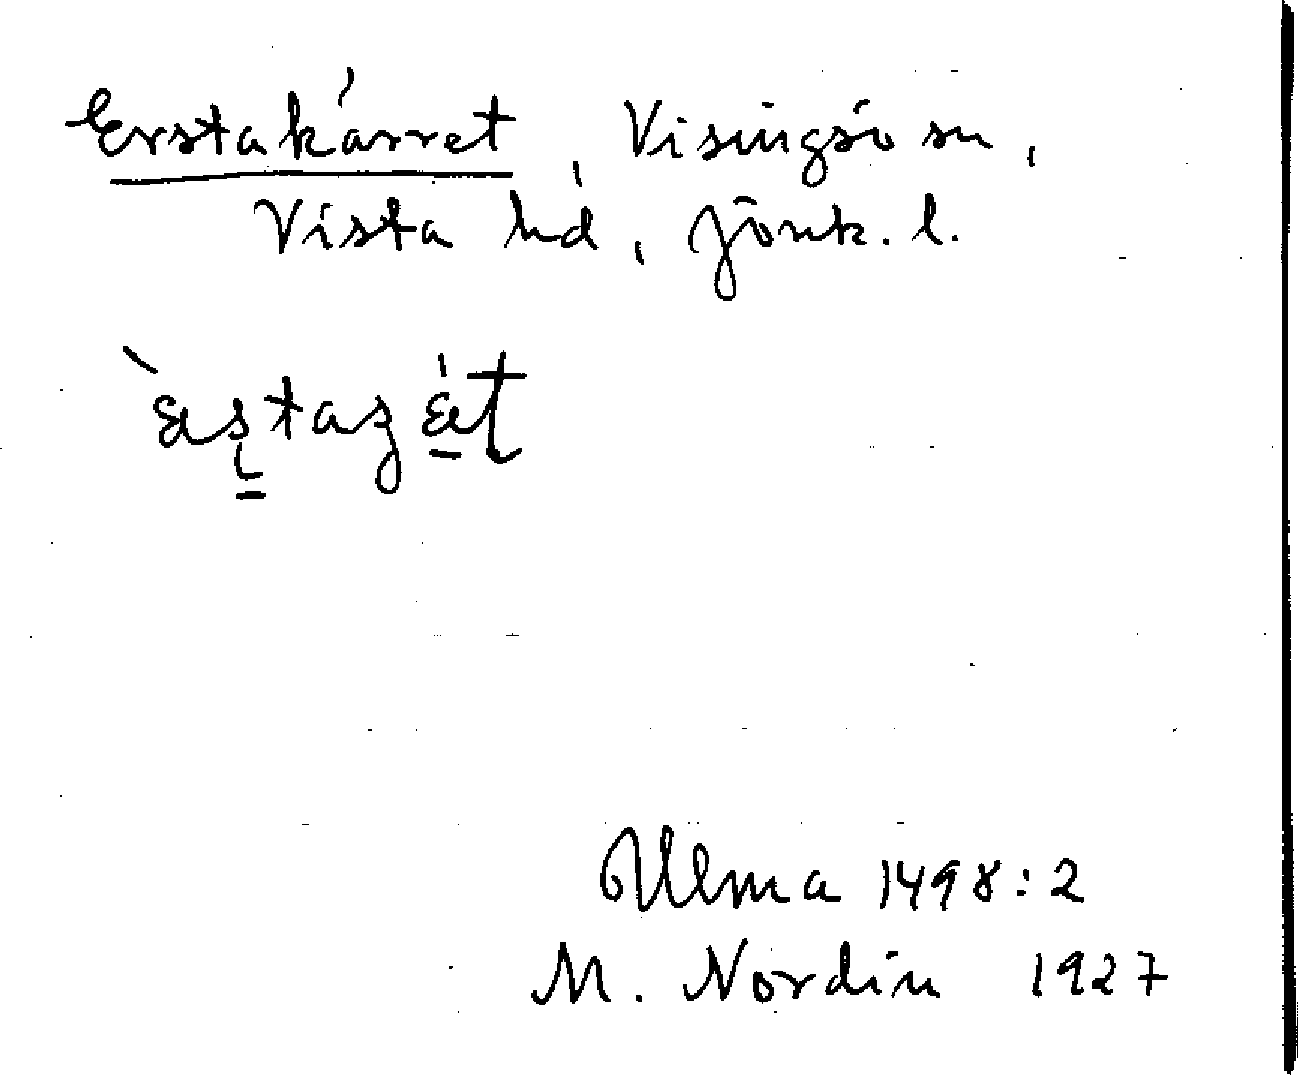 Erstakärret, Visingsö sn,
Vista hd, Jönk. l.
Ulma 1498:2
M. Nordin 1927